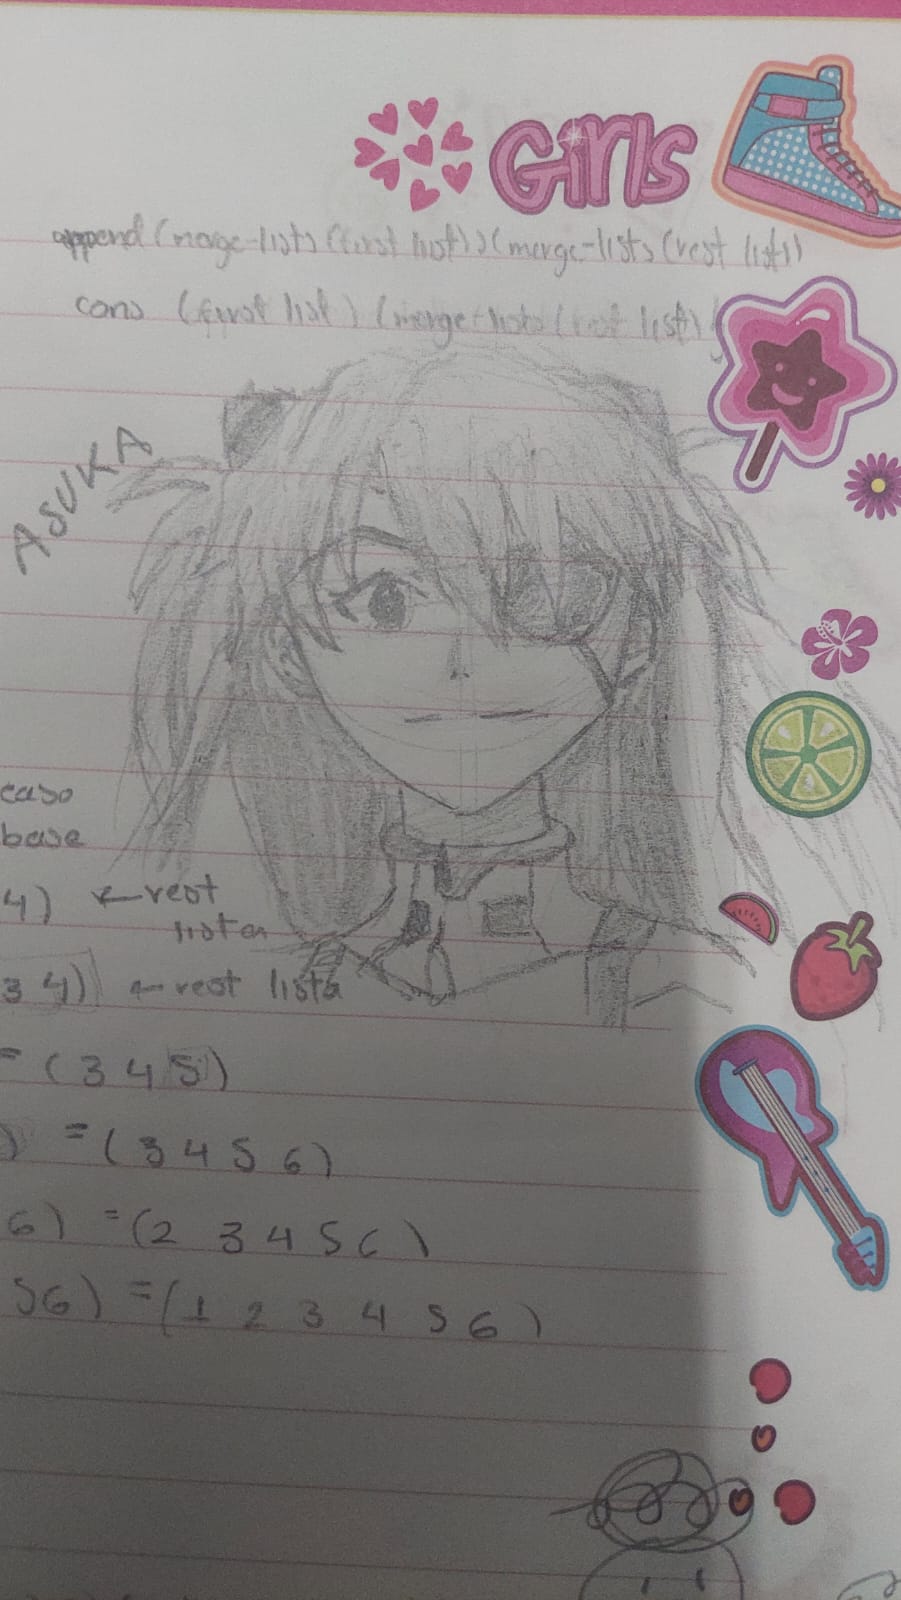 Girls
append (merge-lists (first list)) (merge-lists (rest list))
cons (first list) (merge-lists (rest list)
ASUKA
caso
base
4) ← rest
lista
3 4) ← rest lista
= (3 4 5)
) = (3 4 5 6)
6) = (2 3 4 5 6)
56) = (1 2 3 4 5 6)